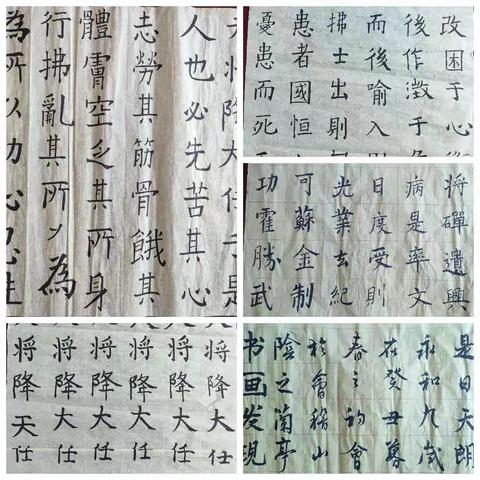 將降大任于是
人也必先苦其心
志勞其筋骨餓其
體膚空乏其所身
行拂亂其所為
為所以動心忍性
改困于心衡
後作徵于
而後喻入則
拂士出則
患者國恒
憂患而死
將磾遺興
病是率文
日度受則
光業去紀
可蘇金制
功霍勝武
將降大任
將降大任
將降大任
將降大任
將降大任
將降天任
是日天朗
永和九歲
在癸丑暮
春之初會
於會稽山
陰之蘭亭
书画发现